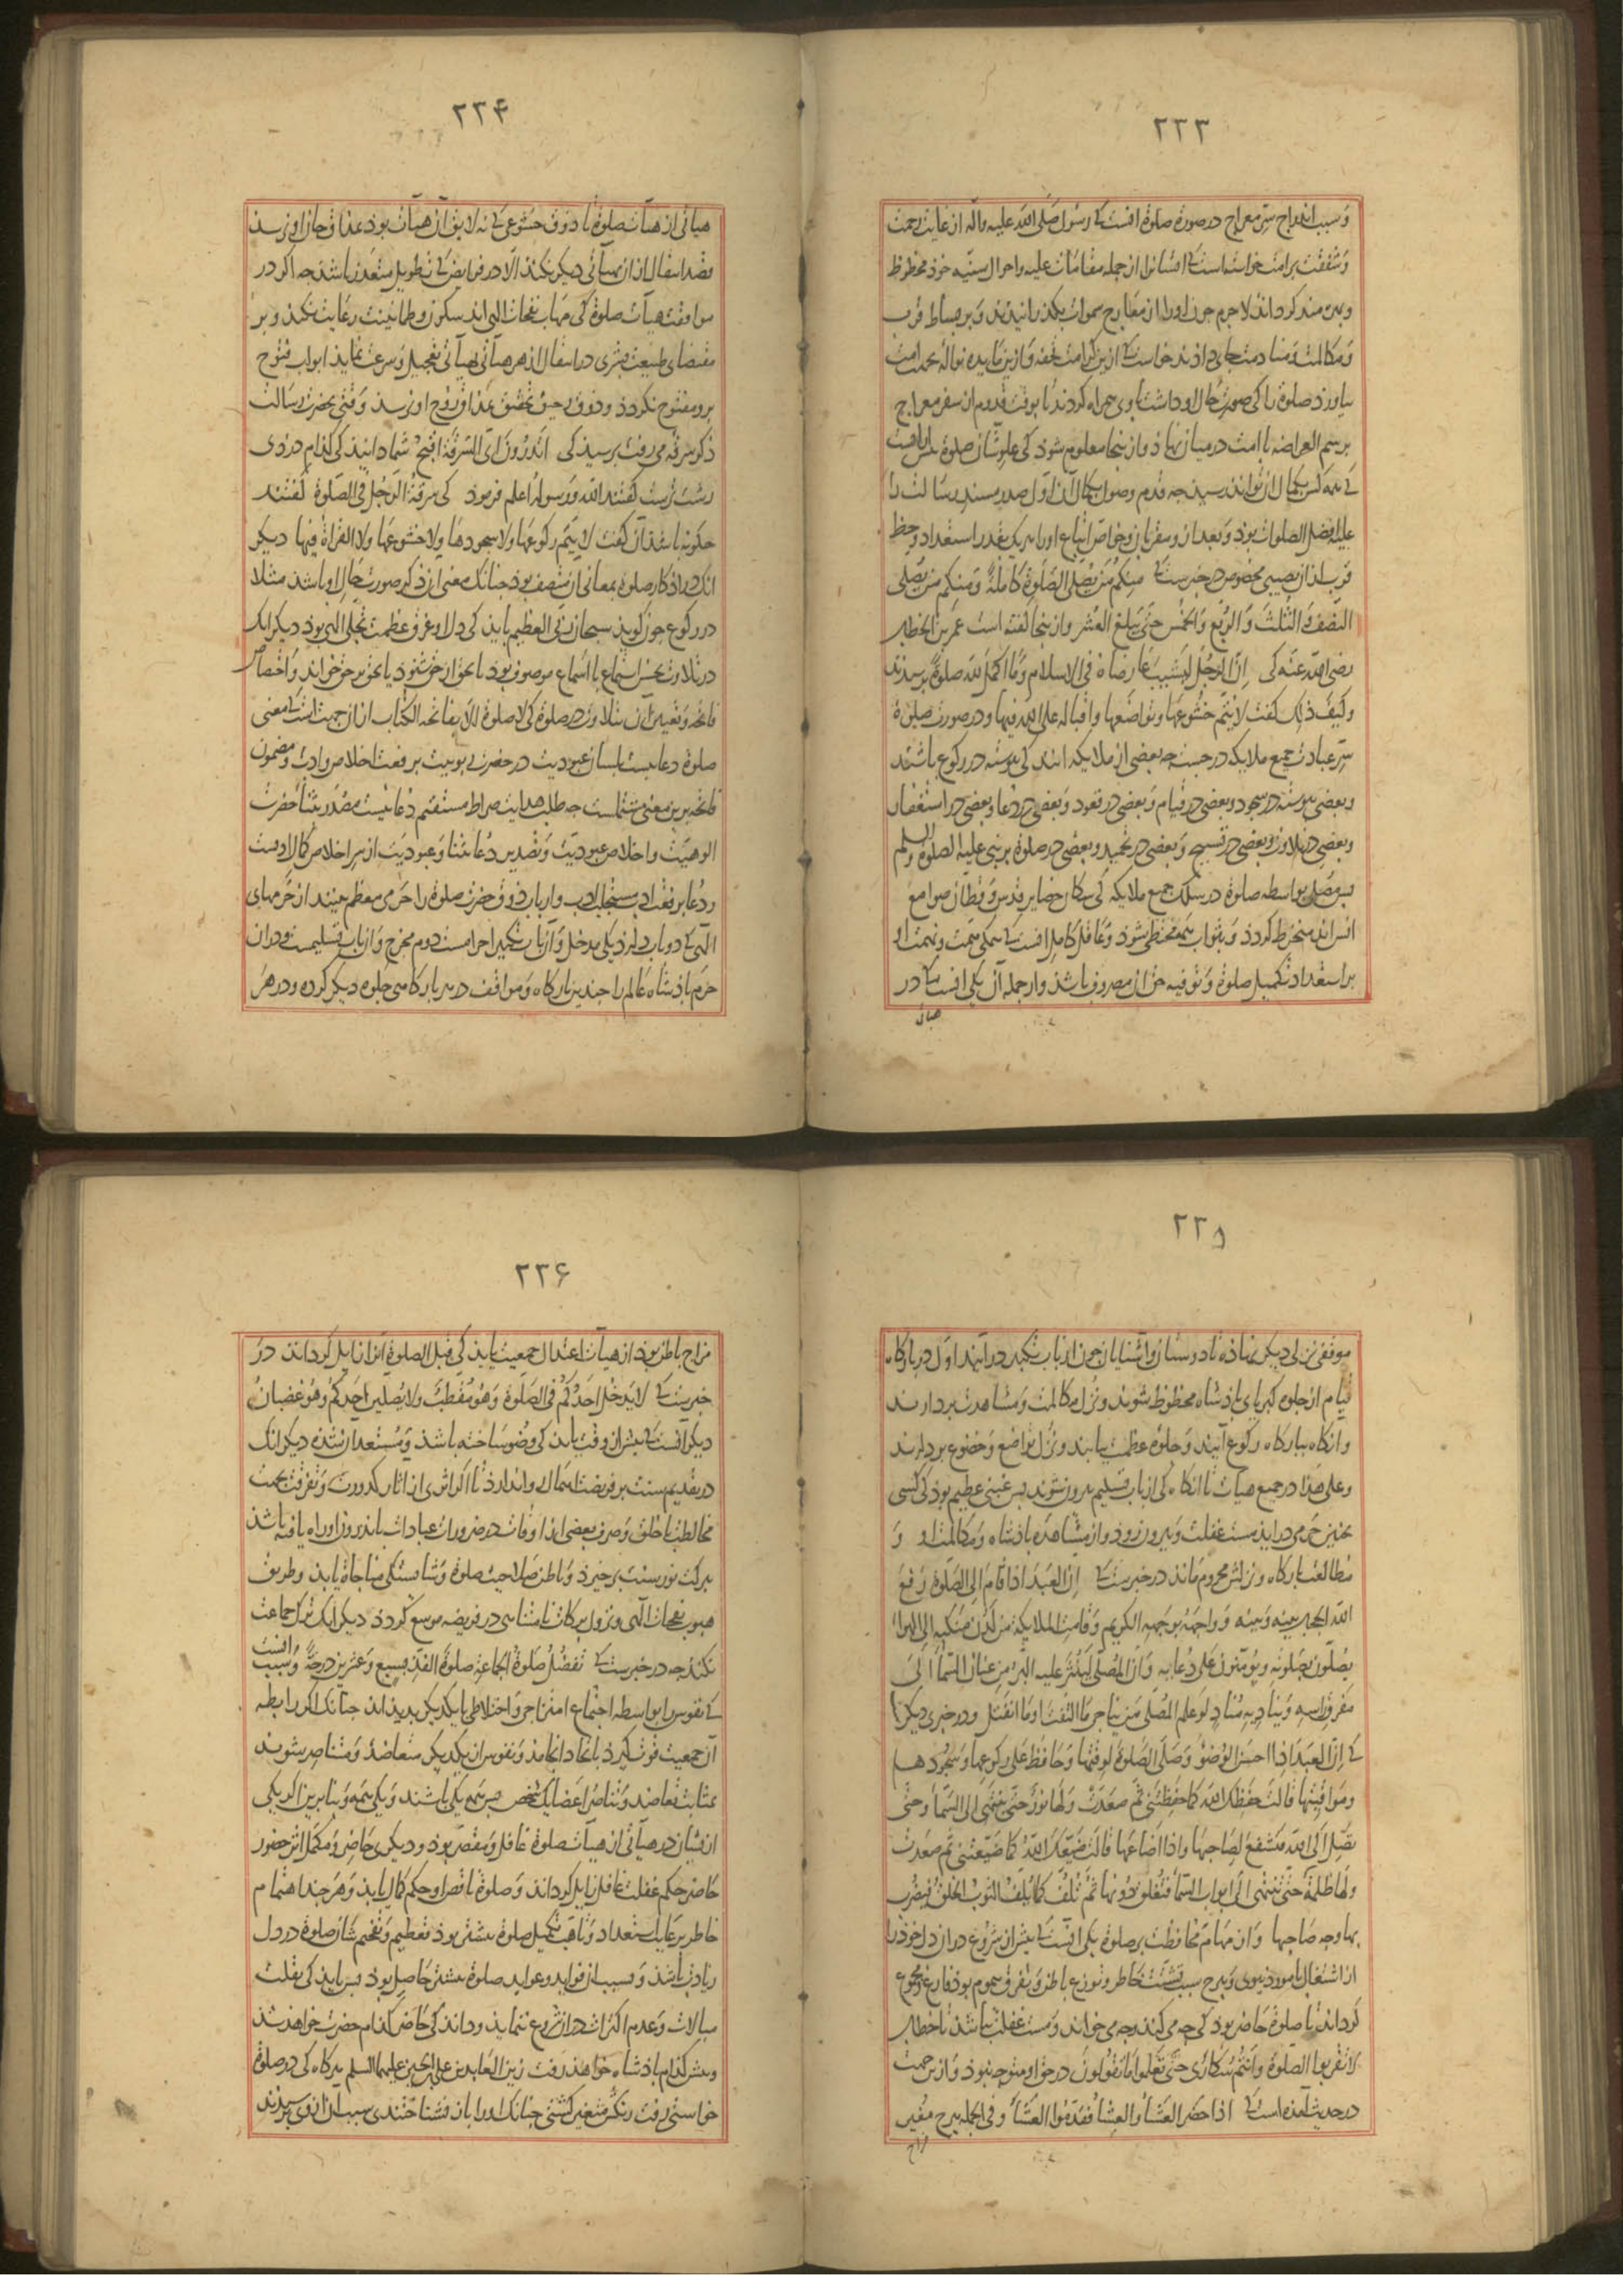 ۲۳۳
و سبب اندراج سر معراج در صورة صلوة آنست کی رسول صلی الله علیه وآله از غایت رحمت
و شفقت بر امت خواسته است تا ایشانرا از جمله مقامات علیه و احوال سنیه خود محظوظ
و بهره مند گرداند لاجرم چون اورا از معارج سموات بگذرانیدند و بر بساط قرب
و مکالمت و منادمت جای دادند خواست کی ازین کرامت تحفه و ازین مایده نواله بجهت امت
بیاورد صلوة را کی صورت حال او داشت با وی همراه کردند تا بوقت قدوم از سفر معراج
برسم العراضه با امت در میان نهاد و از ینجا معلوم شود کی علو شان صلوة
کی همه کس بکمال آن نتواند رسید چه قدم وصول بکمال آن اول صدر مسند رسالت را
علیه افضل الصلوات بود و بعد از و مقربان و خواص اتباع اورا هر یک بقدر استعداد و حظ
قرب از آن نصیبی مخصوص در خبرست کی منکم من یصلی الصلوة کاملة و منکم من یصلی
النصف و الثلث و الربع و الخمس حتی یبلغ العشر و از ینجا گفته است عمر بن الخطاب
رضی الله عنه کی ان الرجل لیشیب عارضاه فی الاسلام و ما اکمل لله صلوة پرسیدند
و کیف ذلک گفت لا یتم خشوعها و تواضعها و اقباله علی الله فیها و در صورت صلوة
سر عبادت جمیع ملایکه درجست چه بعضی از ملایکه انند کی پیوسته در رکوع باشند
و بعضی پیوسته در سجود و بعضی در قیام و بعضی در قعود و بعضی در دعا و بعضی در استغفار
و بعضی در تلاوت و بعضی در تسبیح و بعضی در تحمید و بعضی در صلوة بر نبی علیه الصلوة والسلم
پس مصلی بواسطه صلوة در سلک جمیع ملایکه کی سکان حضایر قدس و قطان صوامع
انس اند منخرط گردد و بثواب همه محتظی شود و عاقل کامل آنست کی همگی همت و نهمت او
بر استعداد تکمیل صلوة و توفیه حق آن مصروف باشد و از جمله آن یکی آنست کی تا در
هیأتی
۲۳۴
هیأتی از هیآت صلوة تا ذوق خشوعی کی لایق آن هیأت بود بمذاق جان او نرسد
قصد انتقال از آن بهیأتی دیگر نکند الا در فرایض کی تطویل متعذر باشد چه اگر در
مواقف هیآت صلوة کی مهاب نفحات الهی اند سکون و طمانینت رعایت نکند و بر
مقتضای طبیعت بشری در انتقال از هر هیأتی بهیأتی تعجیل و سرعت نماید ابواب فتوح
برو مفتوح نگردد و ذوق رحیق تحقیق بمذاق روح او نرسد وقتی بحضرت رسالت
ذکر سرقه می رفت پرسید کی اتدرون ای السرقة اقبح شما دانید کی کدام دزدی
زشت ترست گفتند الله و رسوله اعلم فرمود کی سرقة الرجل فی الصلوة گفتند
چگونه باشد آن گفت لا یتم رکوعها ولا سجودها ولا خشوعها ولا القراة فیها دیگر
انک در اذکار صلوة بمعانی آن متصف بود چنانک معنی از ذکر صورت حال او باشد مثلا
در رکوع چون گوید سبحان ربی العظیم باید کی دل او غرق عظمت تجلی الهی بود دیگر انک
در تلاوت بحسن استماع با اسماع موصوف بود تا بحق از حق شنود یا بحق بر حق خواند و اختصاص
فاتحه و تعین آن بتلاوت در صلوة کی لا صلوة الا بفاتحة الکتاب از آن جهت است کی معنی
صلوة دعا بلسان عبودیت در حضرت ربوبیت بر نعت اخلاص و ادب و مضمون
فاتحه برین معنی مشتملست چه طلب هدایت صراط مستقیم دعائیست مصدر بثناء حضرت
الوهیت و اخلاص عبودیت و تصدیر دعا بثنا و عبودیت از سر اخلاص کمال ادبست
و دعا بر نعت ادب مستجاب و ارباب ذوق حضرت صلوة را حرمی معظم بینند از حرمهای
الهی کی دو باب دارد یکی مدخل و آن باب تکبیر احرامست دوم مخرج و آن باب تسلیمست و در آن
حرم پادشاه عالم را چندین بارگاه و مواقف در هر بارگاهی جلوه دیگر کرده و در هر
۲۳۵
موقفی نزلی دیگر نهاده تا دوستان و آشنایان چون از باب تکبیر در آیند اول در بارگاه
قیام از جلوه کبریای پادشاه محظوظ شوند و نزل مکالمت و مشاهدت بردارند
و آنگاه ببارگاه رکوع آیند و جلوه عظمت بیابند و نزل تواضع و خضوع بردارند
و علی هذا در جمیع هیآت تا آنگاه کی از باب تسلیم بیرون شوند پس غبنی عظیم بود کی کسی
بچنین حرمی در آید مست غفلت و بیرون رود و از مشاهده پادشاه و مکالمت او و
مطالعت بارگاه و نزلش محروم ماند در خبرست کی ان العبد اذا قام الی الصلوة رفع
الله الحجاب بینه و بینه و واجهه بوجهه الکریم و قامت الملایکة من لدن منکبیه الی الهوا
یصلون بصلوته و یؤمنون علی دعایه و ان المصلی لینثر علیه البر من عنان السماء الی
مفرق راسه و ینادیه مناد لو علم المصلی من یناجی ما التفت او ما انفتل و در خبری دیگر
کی ان العبد اذا احسن الوضوء و صلی الصلوة لوقتها و حافظ علی رکوعها و سجودها
و مواقیتها قالت حفظک الله کما حفظتنی ثم صعدت و لها نور حتی تنتهی الی السماء و حتی
تصل الی الله فتشفع لصاحبها و اذا اضاعها قالت ضیعک الله کما ضیعتنی ثم صعدت
و لها ظلمة حتی تنتهی الی ابواب السماء فتغلق دونها ثم تلف کما یلف الثوب الخلق فیضرب
بها وجه صاحبها و از مهام محافظت بر صلوة یکی آنست کی پیش از شروع در آن دل خود را
از اشتغال بامور دنیوی و هرچ سبب تشتت خاطر و توزع باطن و تفرق هموم بود فارغ و مجموع
گرداند تا صلوة حاضر بود کی چه می کند و چه می خواند و مست غفلت نباشد تا خطاب
لا تقربوا الصلوة و انتم سکاری حتی تعلموا ما تقولون در حق او متوجه نبود و ازین جهت
در حدیث آمده است کی اذا حضر العشاء و العشاء فقدموا العشاء و فی الجمله هرچ مغیر
مزاج
۲۳۶
مزاج باطن بود از هیأت اعتدال جمعیت باید کی قبل الصلوة آنرا زایل گرداند در
خبرست کی لا یدخل احدکم فی الصلوة و هو مقطب ولا یصلین احدکم و هو غضبان
دیگر آنست کی پیش از وقت باید کی وضو ساخته باشد و مستعد آن شده دیگر انک
در تقدیم سنت بر فریضت اهمال روا ندارد تا اگر اثری از آثار کدورت و تفرقت بجهت
مخالطت با خلق و صرف بعضی از اوقات در ضرورات عبادات باندرون او راه یافته باشد
ببرکت نور سنت برخیزد و باطن صلاحیت صلوة و شایستگی مناجاة یابد و طریق
هبوب نفحات الهی و نزول برکات نامتناهی در فریضه موسع گردد دیگر انک ترک جماعت
نکند چه در خبرست کی تفضل صلوة الجماعة صلوة الفذ بسبع و عشرین درجة و سبب آنست
کی نفوس را بواسطه اجتماع امتزاجی و اختلاطی با یکدیگر پدید اند چنانک اگر رابطه
آن جمعیت قوت گیرد باتحاد انجامد و نفوس ایشان بیکدیگر متعاضد و متناصر شوند
بمثابت تعاضد و تناصر اعضای یک شخص پس همه یکی باشند و یکی همه و بنابرین اگر یکی
از ایشان در هیأتی از هیآت صلوة غافل و مقصر بود و دیگری حاضر و مکمل اثر حضور
حاضر حکم غفلت غافل زایل گرداند و صلوة ناقص او حکم کمال یابد و هر چند اهتمام
خاطر برعایت استعداد و تاهب تکمیل صلوة بیشتر بود تعظیم و تفخیم شان صلوة در دل
زیادت باشد و بسبب آن فواید و عواید صلوة بیشتر حاصل بود پس باید کی بقلت
مبالات و عدم اکتراث در آن شروع ننماید و داند کی حاضر کدام حضرت خواهد شد
و پیش کدام پادشاه خواهد رفت زین العابدین علی بن الحسین علیهما السلم هرگاه کی در صلوة
خواستی رفت رنگش متغیر گشتی چنانک اورا باز نشناختندی سبب آن ازوی پرسیدند